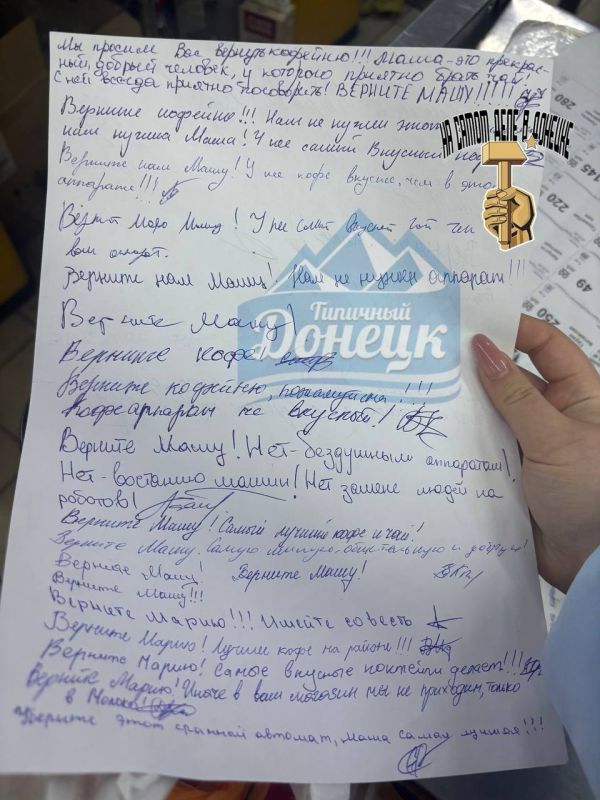 Мы просим Вас вернуть кофейню!!! Маша - это прекрас-
ный, добрый человек, у которого приятно брать чай!
С ней всегда приятно поговорить! ВЕРНИТЕ МАШУ!!!!!
Верните кофейню!!! Нам не нужен этот
нам нужна Маша! У нее самый вкусный
Верните нам Машу! У нее кофе вкуснее, чем в этом
аппарате!!!
НА САМОМ ДЕЛЕ В ДОНЕЦКЕ
Машу! У нее самый вкусный чай чем
ваш аппарат.
Верните нам Машу! Нам не нужен аппарат!!!
Типичный
Донецк
Верните Машу!
Верните кофе!
Верните кофейню, пожалуйста!!!
Кофеаппарат не вкусный!
Верните Машу! Нет - бездушным аппаратам!
Нет - востанию машин! Нет замене людей на
роботов!
Верните Машу! Самый лучший кофе и чай!
Верните Машу. Самую милую, общительную и добрую!
Верните Машу! Верните Машу!
Верните Машу!!!
Верните Марию!!! Имейте совесть
Верните Марию! Лучший кофе на районе!!!
Верните Марию! Самые вкусные коктейли делает!!!
Верните Марию! Иначе в ваш магазин мы не приходим, только
в Молоко!
Уберите этот сранный автомат, Маша самая лучшая!!!
280
145
220
49
250